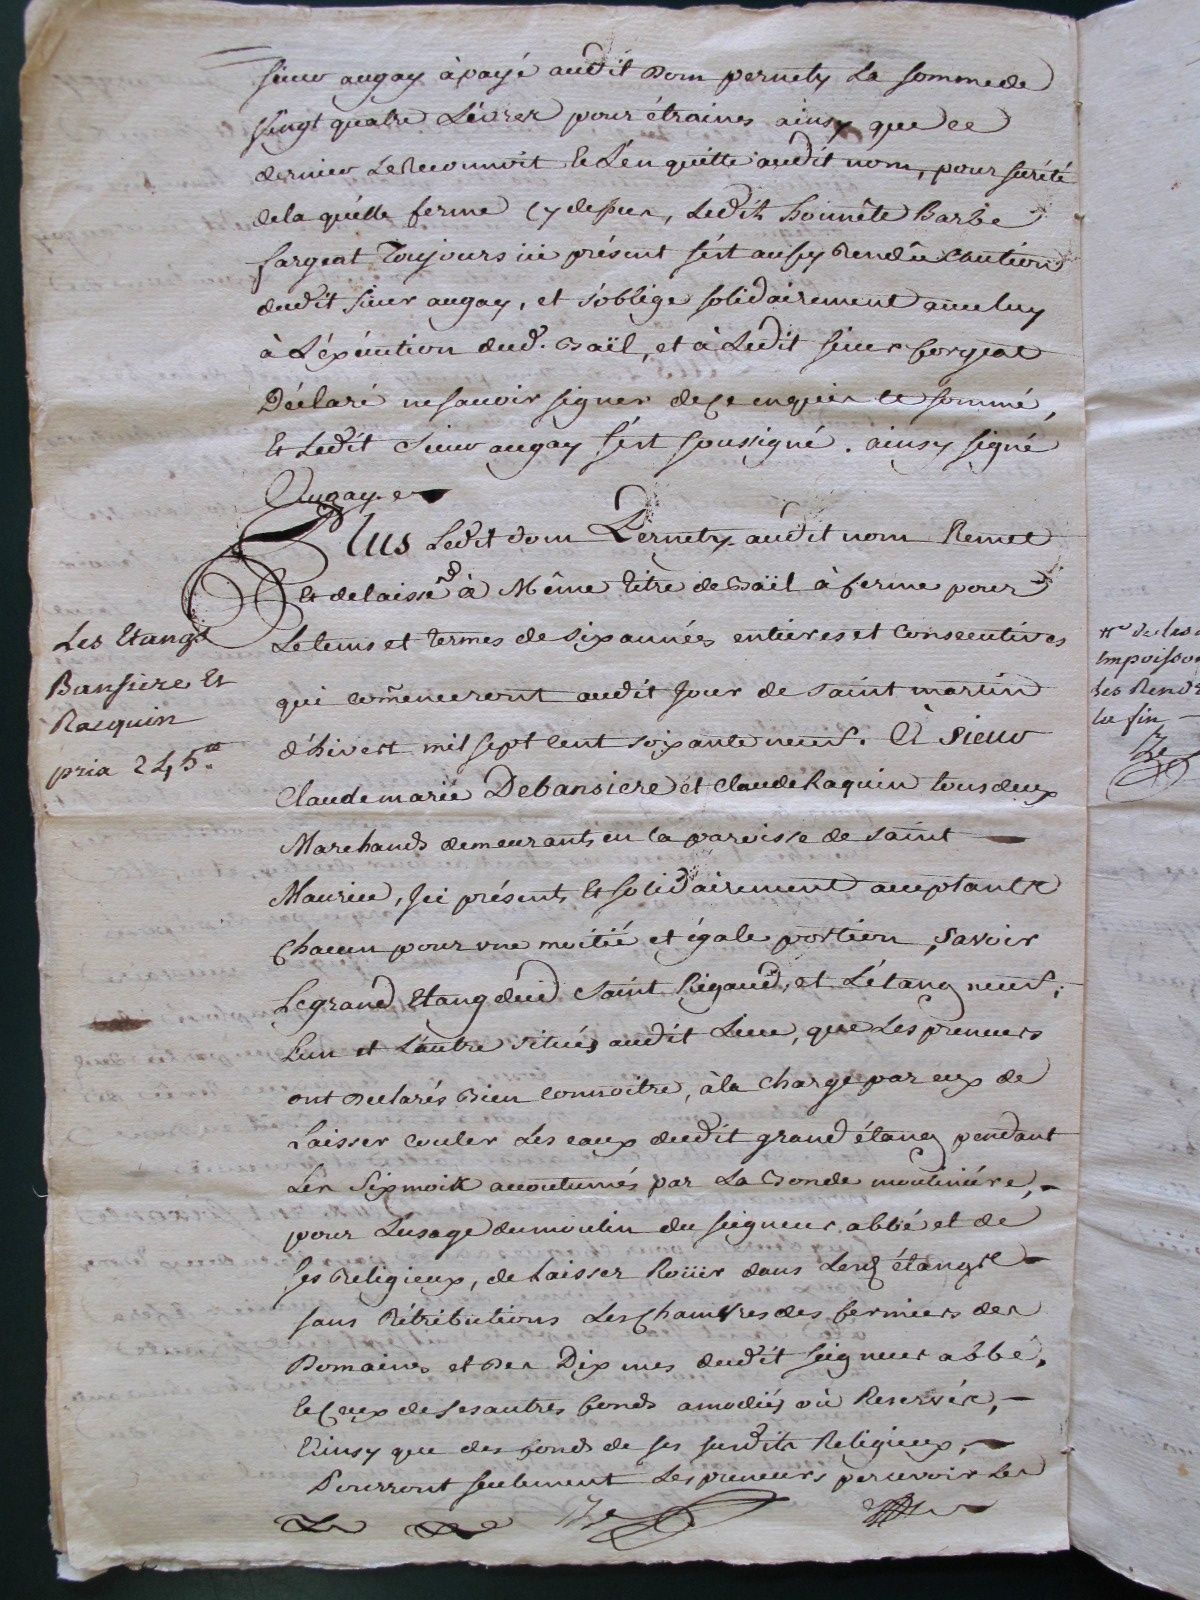 sieur augay àpayé audit Dom pernety La somme de
Vingt quatre Livres pour étraines ainsy que ce
dernier Le Reconnoit et L'en quitte audit nom, pour sureté
de la quelle ferme cy dessus, Ledit honnête Barbe
fargeat Toujours ici présent s'est aussy Rendû Caution
dudit sieur augay, et s'oblige solidairement avec luy
à L'exécution dud. Baïl, et à Ledit sieur forgeat
Déclaré ne savoir signer de ce enquis et sommé,
Et Ledit Sieur augay s'est soussigné. ainsy signé
Augay.
Plus Ledit dom Pernety audit nom Remet
Et delaisse à Même titre de Baïl à ferme pour
Le tems et termes de six années entieres et Consecutives
qui com̃enceront audit Jour de saint martin
d'hivert mil sept cent soixante neuf. À sieur
Claude marie Debansiere et Claude Raquin tous deux
Marchands demeurants en la paroisse de saint
Maurice, Ici présents Et solidairement acceptants
Chacun pour une moitié et égale portion, savoir
Le grand Etang dud Saint Rigaud, et L'étang neuf;
L'un et L'autre situés audit Lieu, que Les preneurs
ont declarés Bien connoitre, àla charge par eux de
Laisser couler Les eaux dudit grand étang pendant
Les Six mois accoutumés par La Bonde mouliniére,
pour L'usage du moulin du seigneur abbé et de
ses Religieux, de Laisser Roüir dans Lesd étangs
sans Rétributions Les Chanvres des fermiers des
Domaines et des Dixmes dudit seigneur abbé,
et Ceux de ses autres fonds amodiés où Reservés,
Ainsy que des fonds de ses susdits Religieux,
Pourront seulement Les preneurs percevoir Les
Les Etangs
Bansiere Et
Racquin
prix 245.tt
Impoisson
Les Rend
la fin